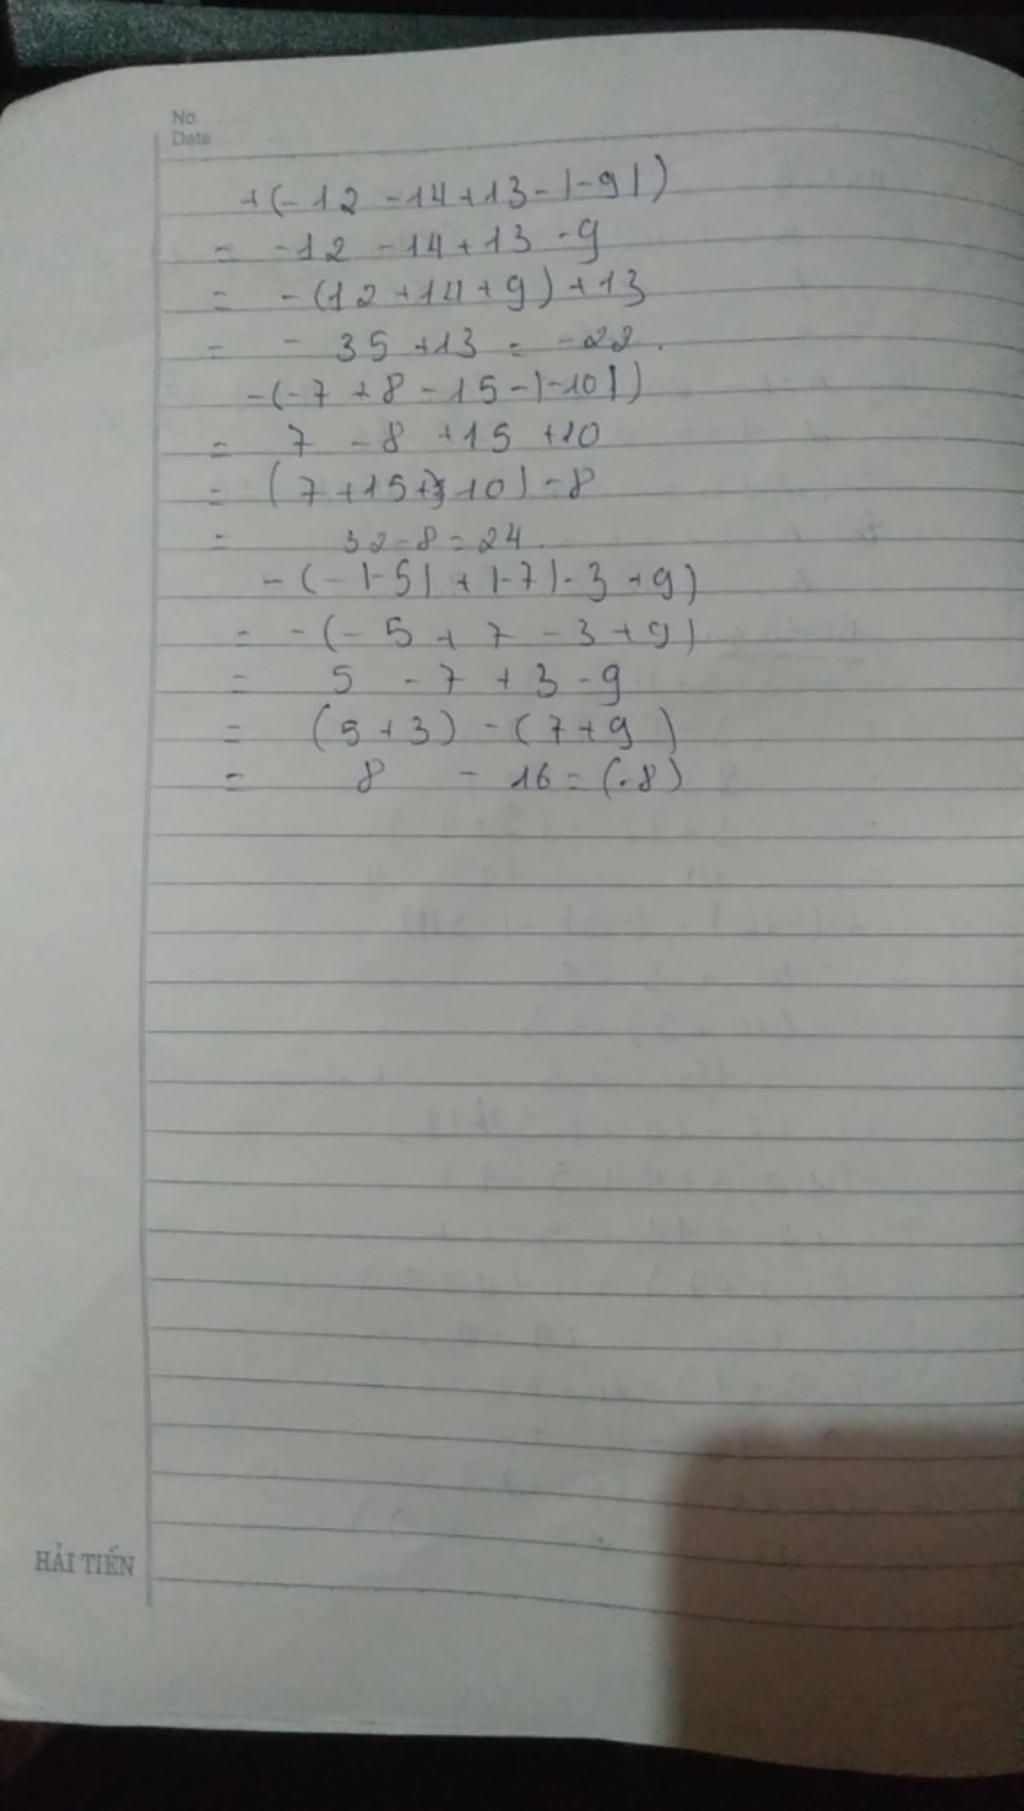 No.
Date
+(-12 -14+13-|-9|)
= -12 -14+13 -9
= -(12+14+9)+13
= - 35 +13 = -22.
-(-7 +8 -15-|-10|)
= 7 -8 +15 +10
= (7+15+10)-8
= 32-8=24.
-(-|-5| + |-7|-3 +9)
= -(-5 + 7 -3+9)
= 5 -7 +3 -9
= (5+3) -(7+9)
= 8 - 16 = (-8)
HẢI TIẾN